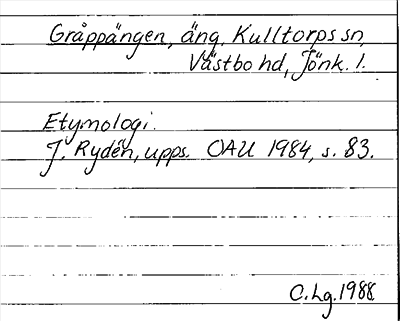 Gråppängen, äng. Kulltorps sn,
Västbo hd, Jönk. l.
Etymologi.
J. Rydén, upps. OAU 1984, s. 83.
C.Lg. 1988